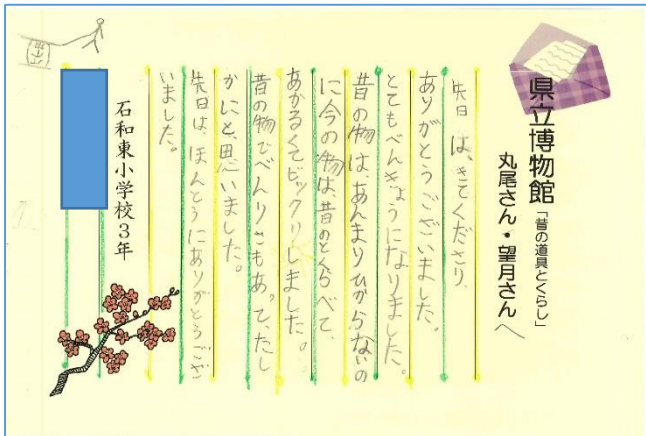 県立博物館「昔の道具とくらし」
丸尾さん・望月さんへ
先日は、きてくださり、
ありがとうございました。
とてもべんきょうになりました。
昔の物は、あんまりひからないの
に今の物は昔のとくらべて、
あかるくてビックリしました。
昔の物でべんりさもあって、たし
かにと、思いました。
先日は、ほんとうにありがとうござ
いました。
石和東小学校3年